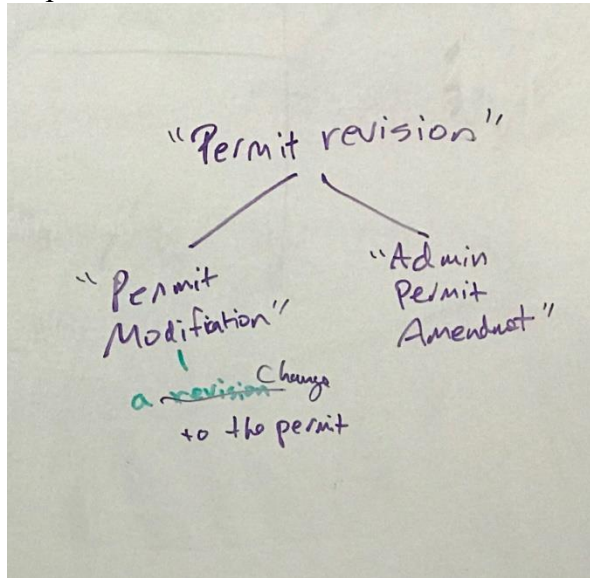 "Permit revision"
"Permit
Modifiation"
a revision Change
to the permit
"Admin
Permit
Amendmet"